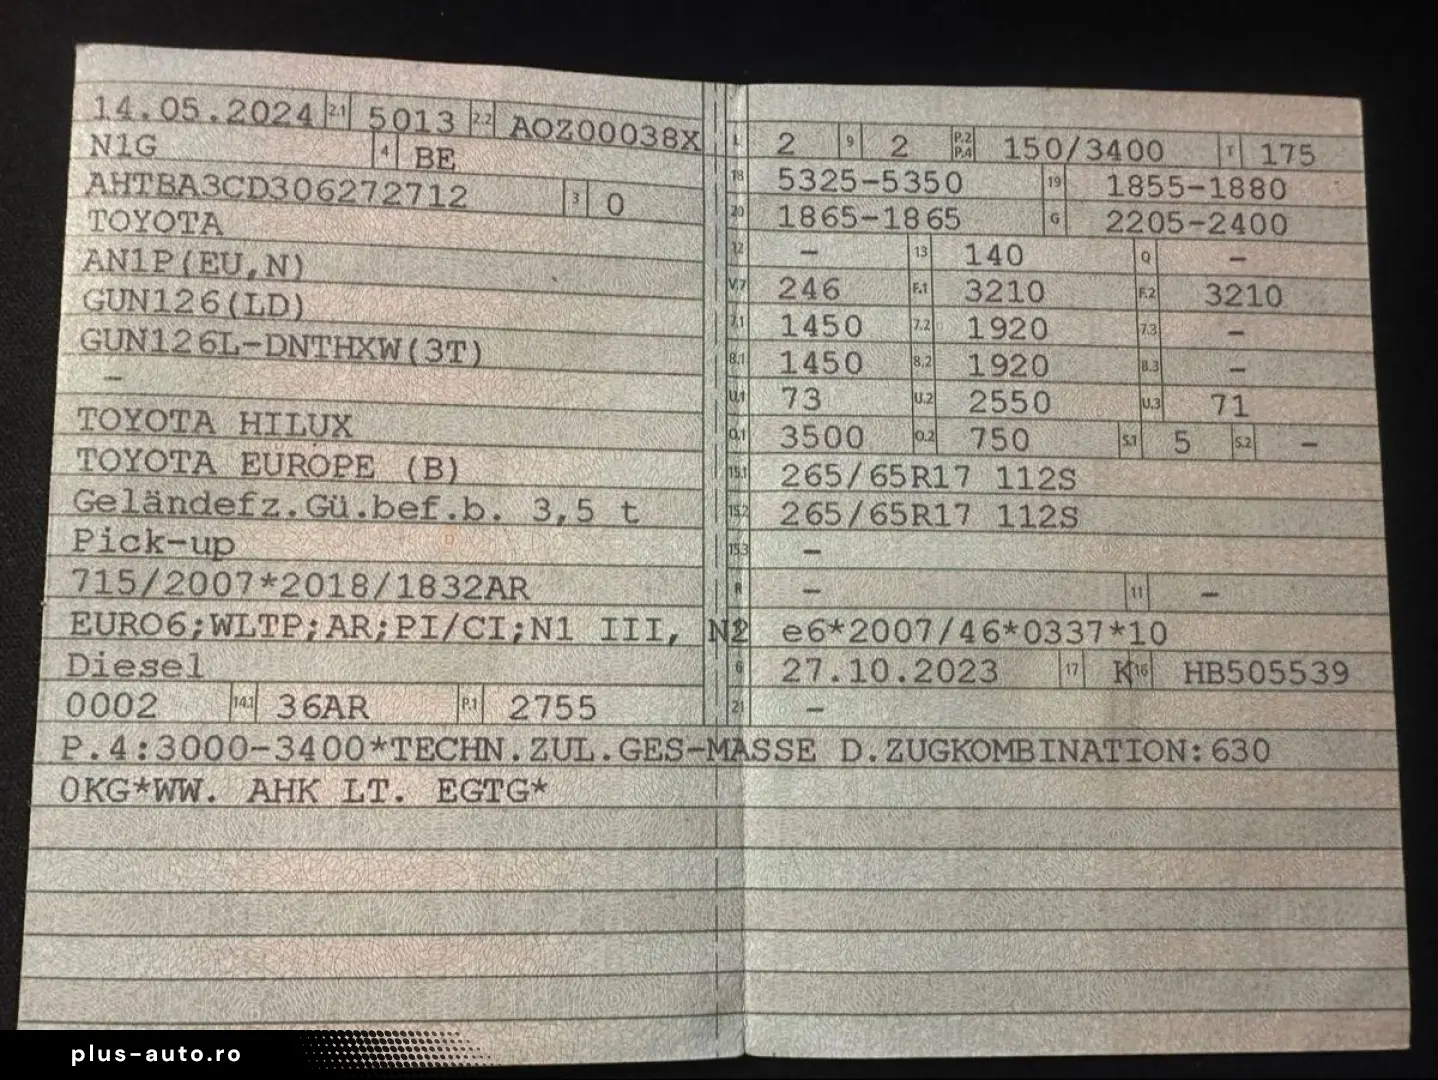 14.05.2024 2.1 5013 2.2 AOZ00038X
N1G 4 BE
AHTBA3CD306272712 3 0
TOYOTA
AN1P(EU,N)
GUN126(LD)
GUN126L-DNTHXW(3T)
–
TOYOTA HILUX
TOYOTA EUROPE (B)
Geländefz.Gü.bef.b. 3,5 t
Pick-up
715/2007*2018/1832AR
EURO6;WLTP;AR;PI/CI;N1 III, N2
Diesel
0002 14.1 36AR P.1 2755
L 2 9 2 P.2 P.4 150/3400 T 175
18 5325-5350 19 1855-1880
20 1865-1865 G 2205-2400
12 – 13 140 Q –
V.7 246 F.1 3210 F.2 3210
7.1 1450 7.2 1920 7.3 –
8.1 1450 8.2 1920 8.3 –
U.1 73 U.2 2550 U.3 71
O.1 3500 O.2 750 S.1 5 S.2 –
15.1 265/65R17 112S
15.2 265/65R17 112S
15.3 –
R – 11 –
e6*2007/46*0337*10
6 27.10.2023 17 K 16 HB505539
21 –
P.4:3000-3400*TECHN.ZUL.GES-MASSE D.ZUGKOMBINATION:630
0KG*WW. AHK LT. EGTG*
plus-auto.ro